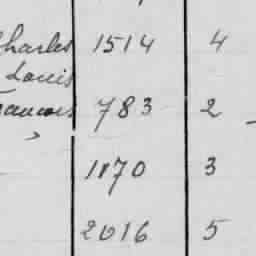 Charles 1514 4
Louis
François 783 2
1170 3
2016 5